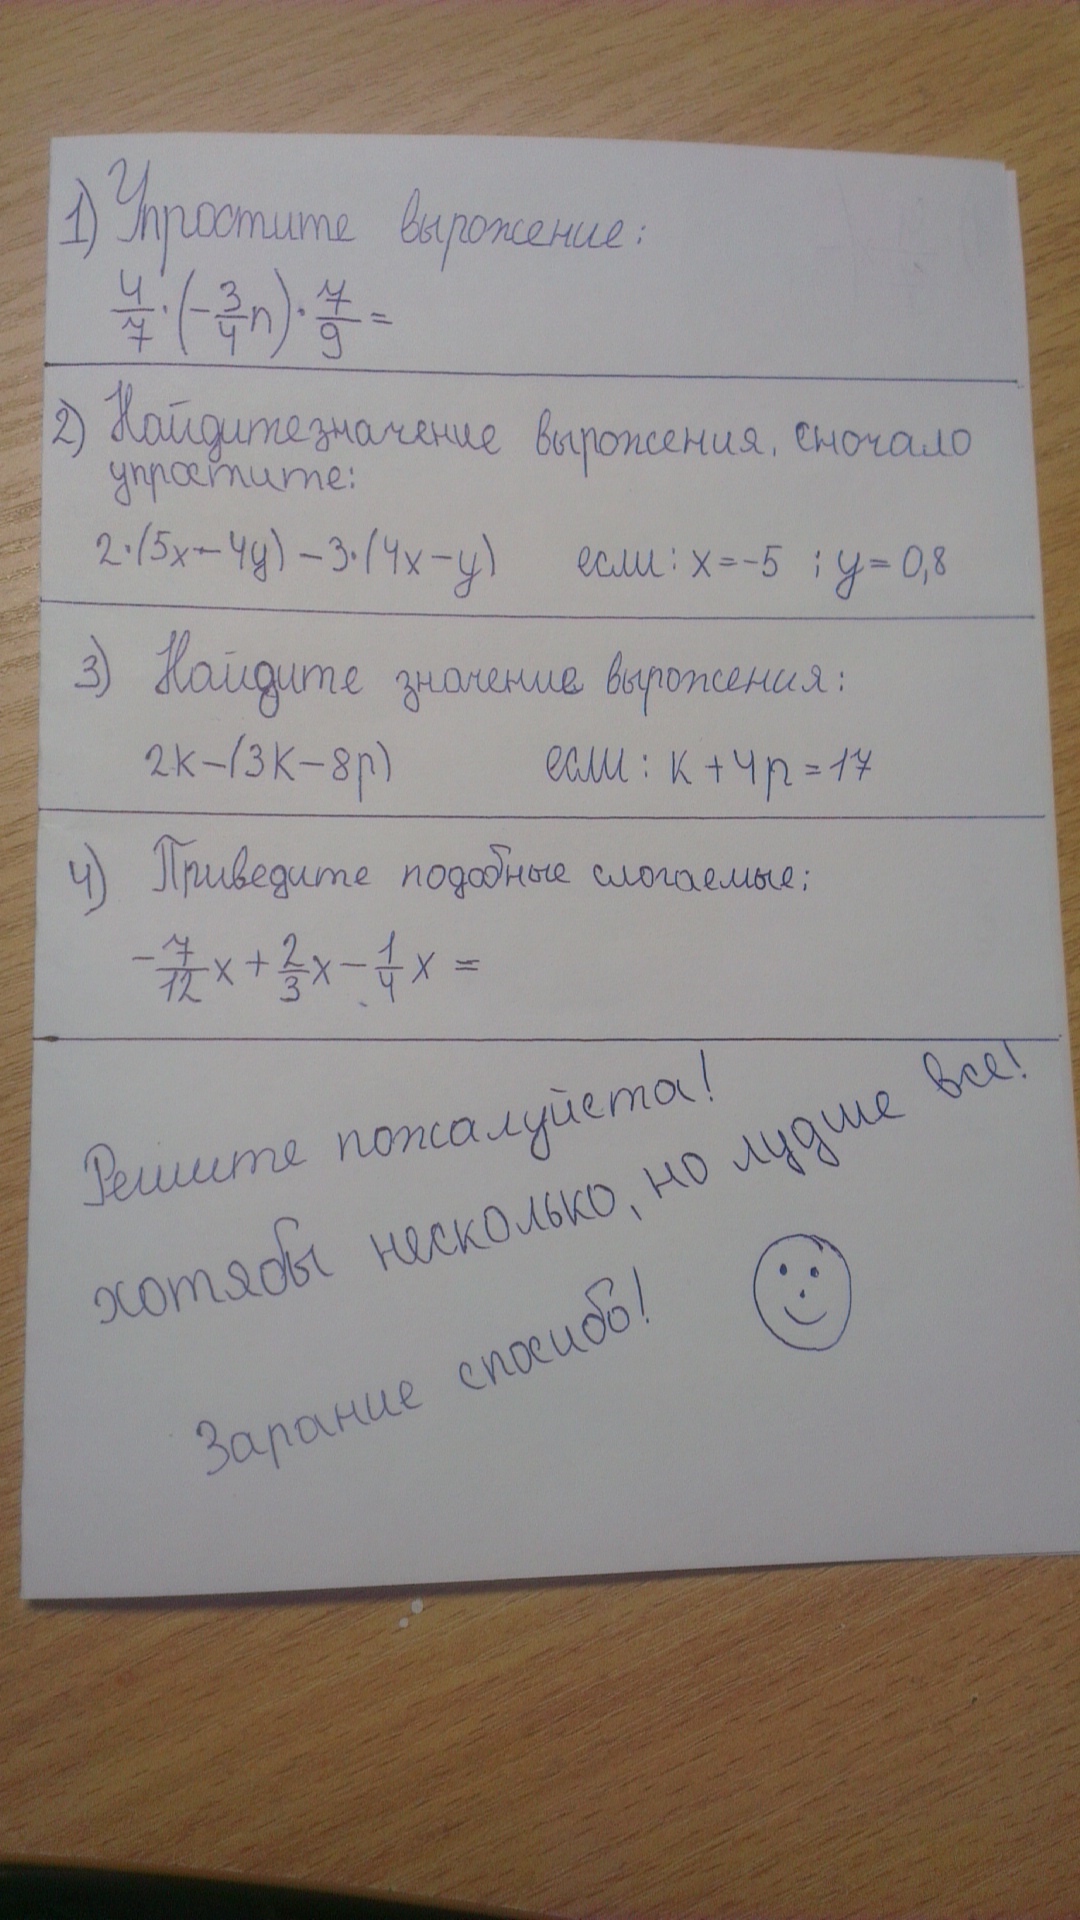 1) Упростите вырожение:
4/7 · (-3/4 n) · 7/9 =
2) Найдитезначение вырожения, сночало
упростите:
2·(5x-4y)-3·(4x-y) если: x=-5 ; y=0,8
3) Найдите значение вырожения:
2k-(3k-8p) если: k+4p=17
4) Приведите подобные слогаемые:
-7/12 x + 2/3 x - 1/4 x =
Решите пожалуйста!
хотябы несколько, но лудше все!
Зарание спосибо!